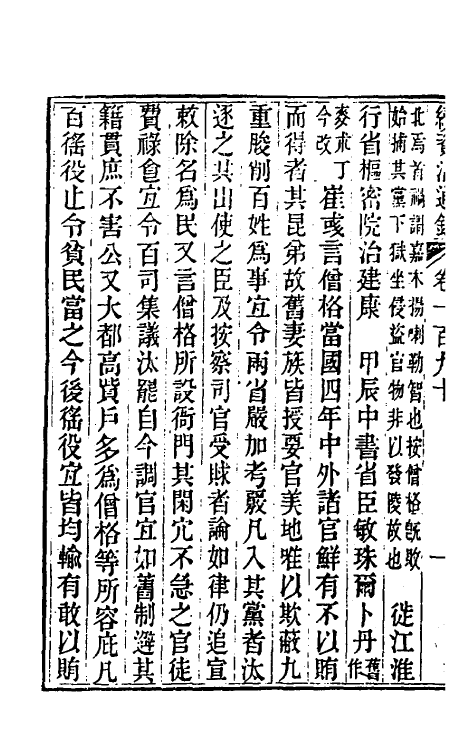 續資治通鑑 卷一百九十 一
北焉首禍謂嘉木揚喇勒智也按僧格既敗
始捕其黨下獄坐侵盜官物非以發陵故也 徙江淮
行省樞密院治建康 甲辰中書省臣敏珠爾卜丹舊作
麥朮丁今改 崔彧言僧格當國四年中外諸官鮮有不以賄
而得者其昆弟故舊妻族皆授要官美地唯以欺蔽九
重朘削百姓爲事宜令兩省嚴加考覈凡入其黨者汰
逐之其出使之臣及按察司官受賕者論如律仍追宣
敕除名爲民又言僧格所設衙門其閑宂不急之官徒
費祿食宜令百司集議汰罷自今調官宜如舊制避其
籍貫庶不害公又大都高貲戶多爲僧格等所容庇凡
百徭役止令貧民當之今後徭役宜皆均輸有敢以賄